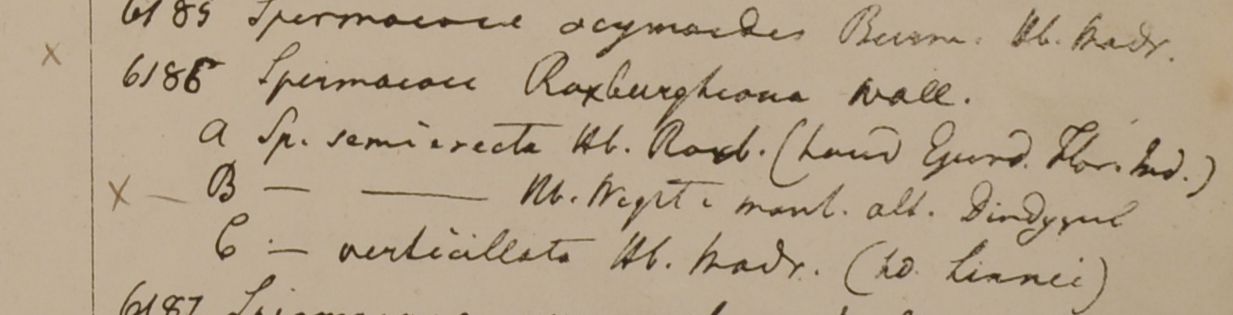 6185 Spermacoce ocymoides Burm. Hb. Madr.
6186 Spermacoce Roxburghiana Wall.
A Sp. semierecta Hb. Roxb. (haud Ejusd. Flor. Ind.)
X — B — —— Hb. Wight e mont. alt. Dindygul
C — verticillata Hb. Madr. (hd. Linnei)
6187